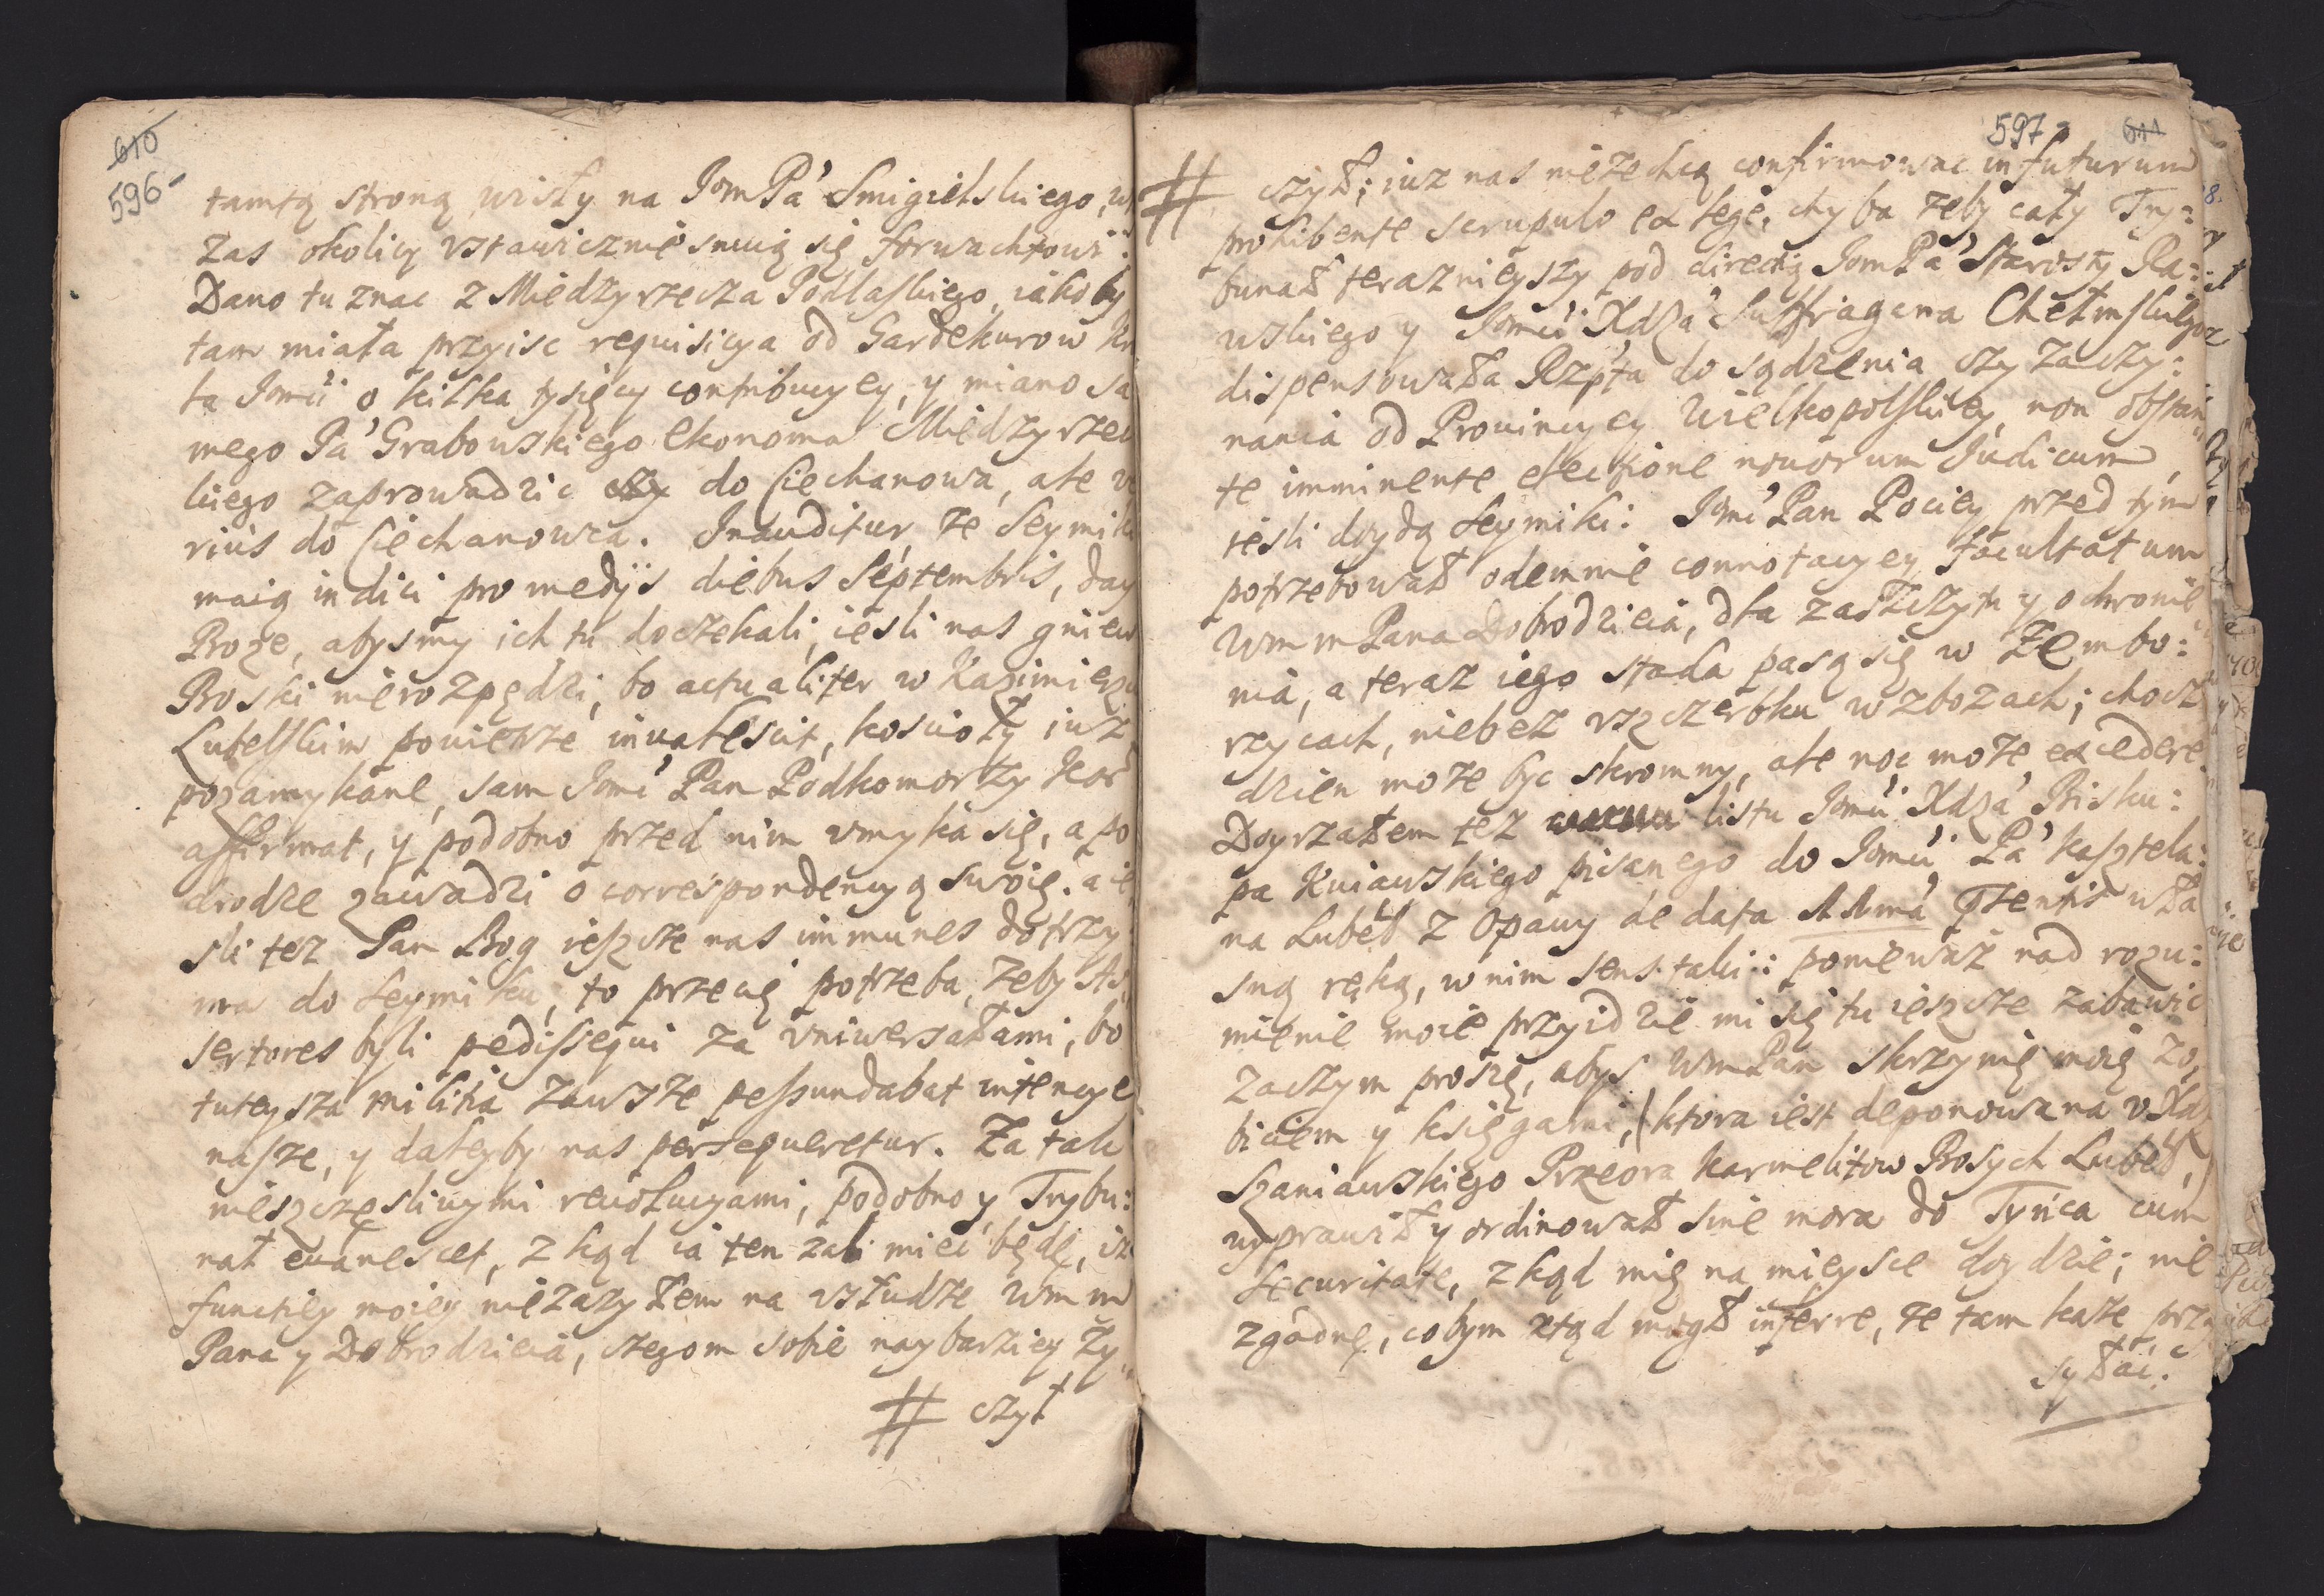 610
596
tamtą stroną wisły na JomPa' Smigielskiego, w
zas okolicy vstawicznie snuią się forwachtowi:
Dano tu znac z Miedzyrzecza Podlaskiego, iakoby
tam miała przyisc requisicya od Gardekurow Kr
la Jomci o kilka tysięcy contribucyey, y miano sa
mego Pa' Grabowskiego Ekonoma Miedzyrzec
kiego zaprowadzic do Ciechanowa, ale ve
rius do Ciechanowca. Inauditur, że Seymiki
maią indici pro medijs diebus Septembris, day
Boże, abysmy ich tu doczekali, iesli nas gniew
Boski nierozpędzi, bo actualiter w Kazimierzu
Lubelskim powietrze invalescit, koscioły iusz
pozamykane, sam Jomc' Pan Podkomorzy Kor
affirmat, y podobno przed nim vmyka się, a po
drodze zawadzi o correspondencyą swoię. a ie
sli tez Pan Bog ieszcze nas immunes dotrzy
ma do Seymiku, to przecię potrzeba, zeby As,
sertores byli pedissequi za vniwersałami, bo
tuteysza militia zawsze pessundabat intencye
nasze, y daleyby nas persequeretur. Za tak
nieszczęsliwymi rewolucyami, podobno y Trybu:
nał evanescet, z kąd ia ten zal miec będę, iz
functiey moiey niezazyłem na vsłudze Wmm
Pana y Dobrodzieia, czegom sobie naybarziey zy"
# czył
597
611
# czył; iuz nas niezechcą confirmowac in futurum
prohibente scrupulo ex lege, chyba zeby cały Try:
bunał terazniejszy pod direktią JomPa' Starosty Ra:
wskiego y Jomci Xdza' Suffragana Chełmskiego
dispensowała Rzpta do sądzenia czy zaczy:
nania od Prowincyey Wielkopolskiey, non obstan"
te imminente electione novorum Judicum,
iesli doydą Seymiki: Jomc' Pan Pociey przed tym
potrzebował odemnie connotacyey facultatum
WmmPana Dobrodzieia, dla zaszczytu y ochronie
nia, a teraz iego stada pasą się w Zembo:
rzycach, niebez vszczerbku w zbozach; chocz
dzien może byc skromny, ale noc może excedere.
Doyrzałem tez listu Jomci Xdza' Bisku:
pa Kuiawskiego pisanego do Jomci Pa' Kasztela:
na Lubel z Opawy de data AAma' Pzentis wła
sną ręką, w nim sens taki: ponieważ nad rozu:
mienie moie przyidzie mi się tu ieszcze zabawic
zaczym proszę, abys WmPan skrzynię moię z o,
biciem y księgami, (ktora iest deponowana v Xdz
Szaniawskiego Przeora Karmelitow Bosych Lubel,)
wyprawił y ordinował sine mora do Tyńca cum
securitate, z kąd mię na mieysce doydzie; nie
zgadnę, cobym ztąd mogł inferre, ze tam kaze przy
syłac: